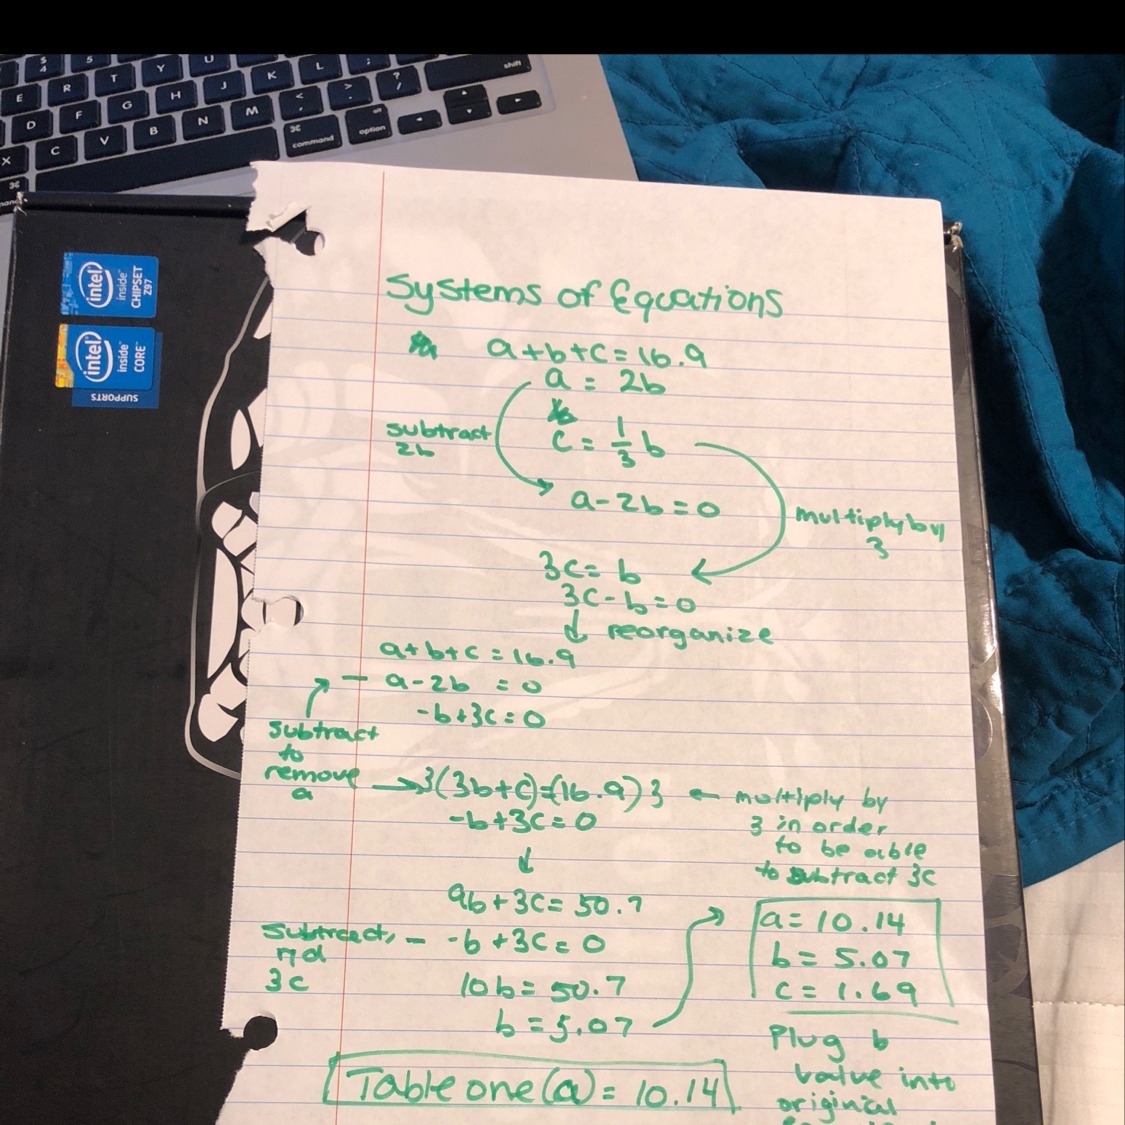 $ 4
5
E R T Y U
D F G H J K L
X C V B N M < , > . ? /
shift
⌘ command
alt option
⌘
intel inside CHIPSET Z97
intel inside CORE
SUPPORTS
Systems of Equations
a+b+c=16.9
a = 2b
c = 1/3 b
subtract
2b
a-2b=0
multiply by
3
3c= b
3c-b=0
↓ reorganize
a+b+c=16.9
- a-2b =0
-b+3c=0
subtract
to
remove
a
→3(3b+c)=(16.9)3 ← multiply by
3 in order
to be able
to subtract 3c
-b+3c=0
↓
9b+3c=50.7
subtract,
3c
- -b+3c=0
10b=50.7
b=5.07
a=10.14
b=5.07
c=1.69
Plug b
value into
original
Table one(a)=10.14